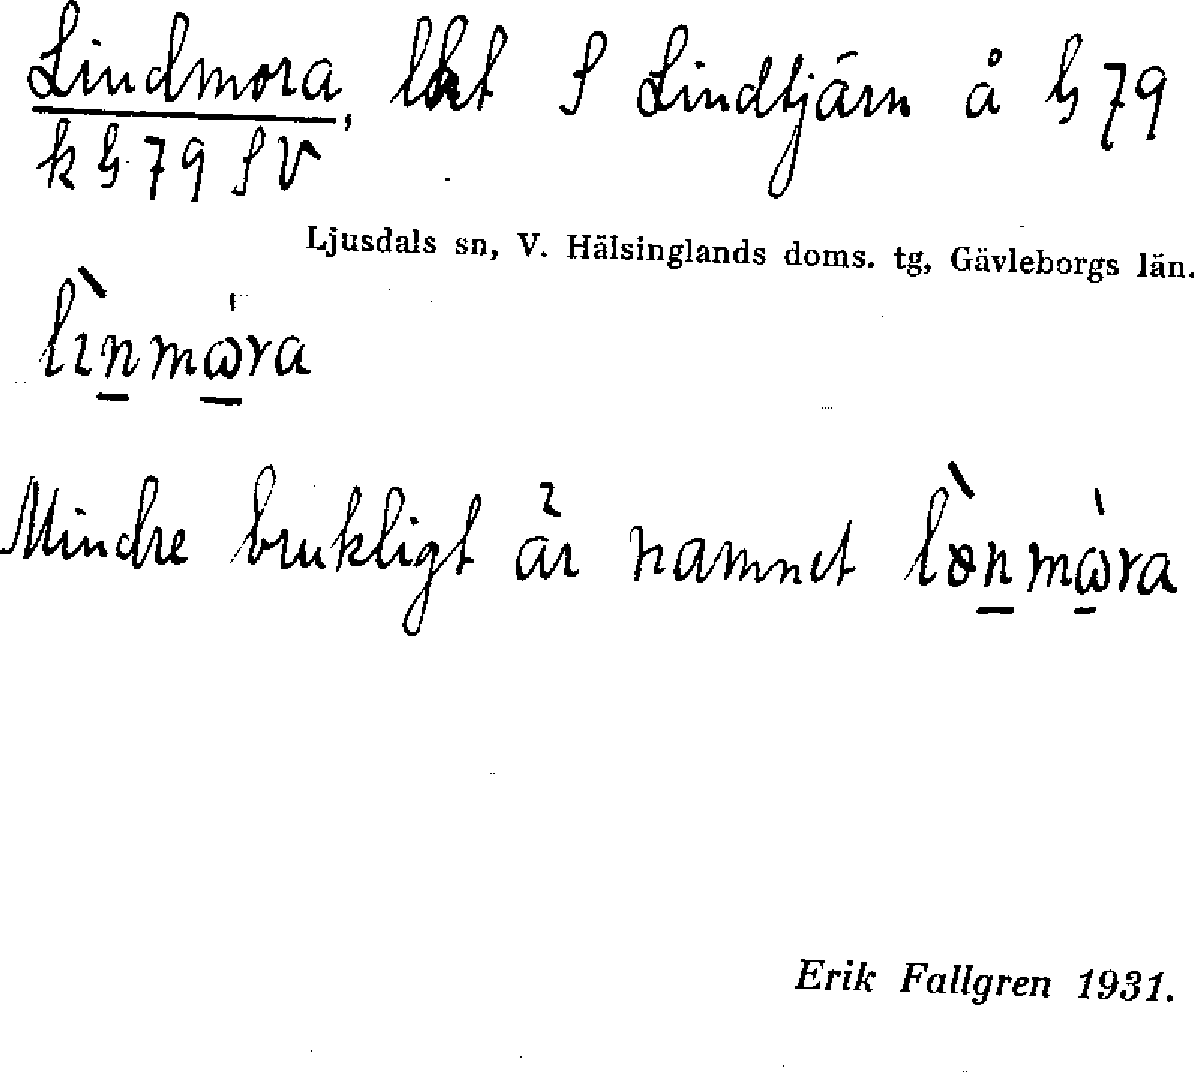 Lindmora, lht S Lindtjärn å h 79
k h 79 S V
Ljusdals sn, V. Hälsinglands doms. tg, Gävleborgs län.
lìnmὼra
Mindre brukligt är namnet lònmὼra
Erik Fallgren 1931.